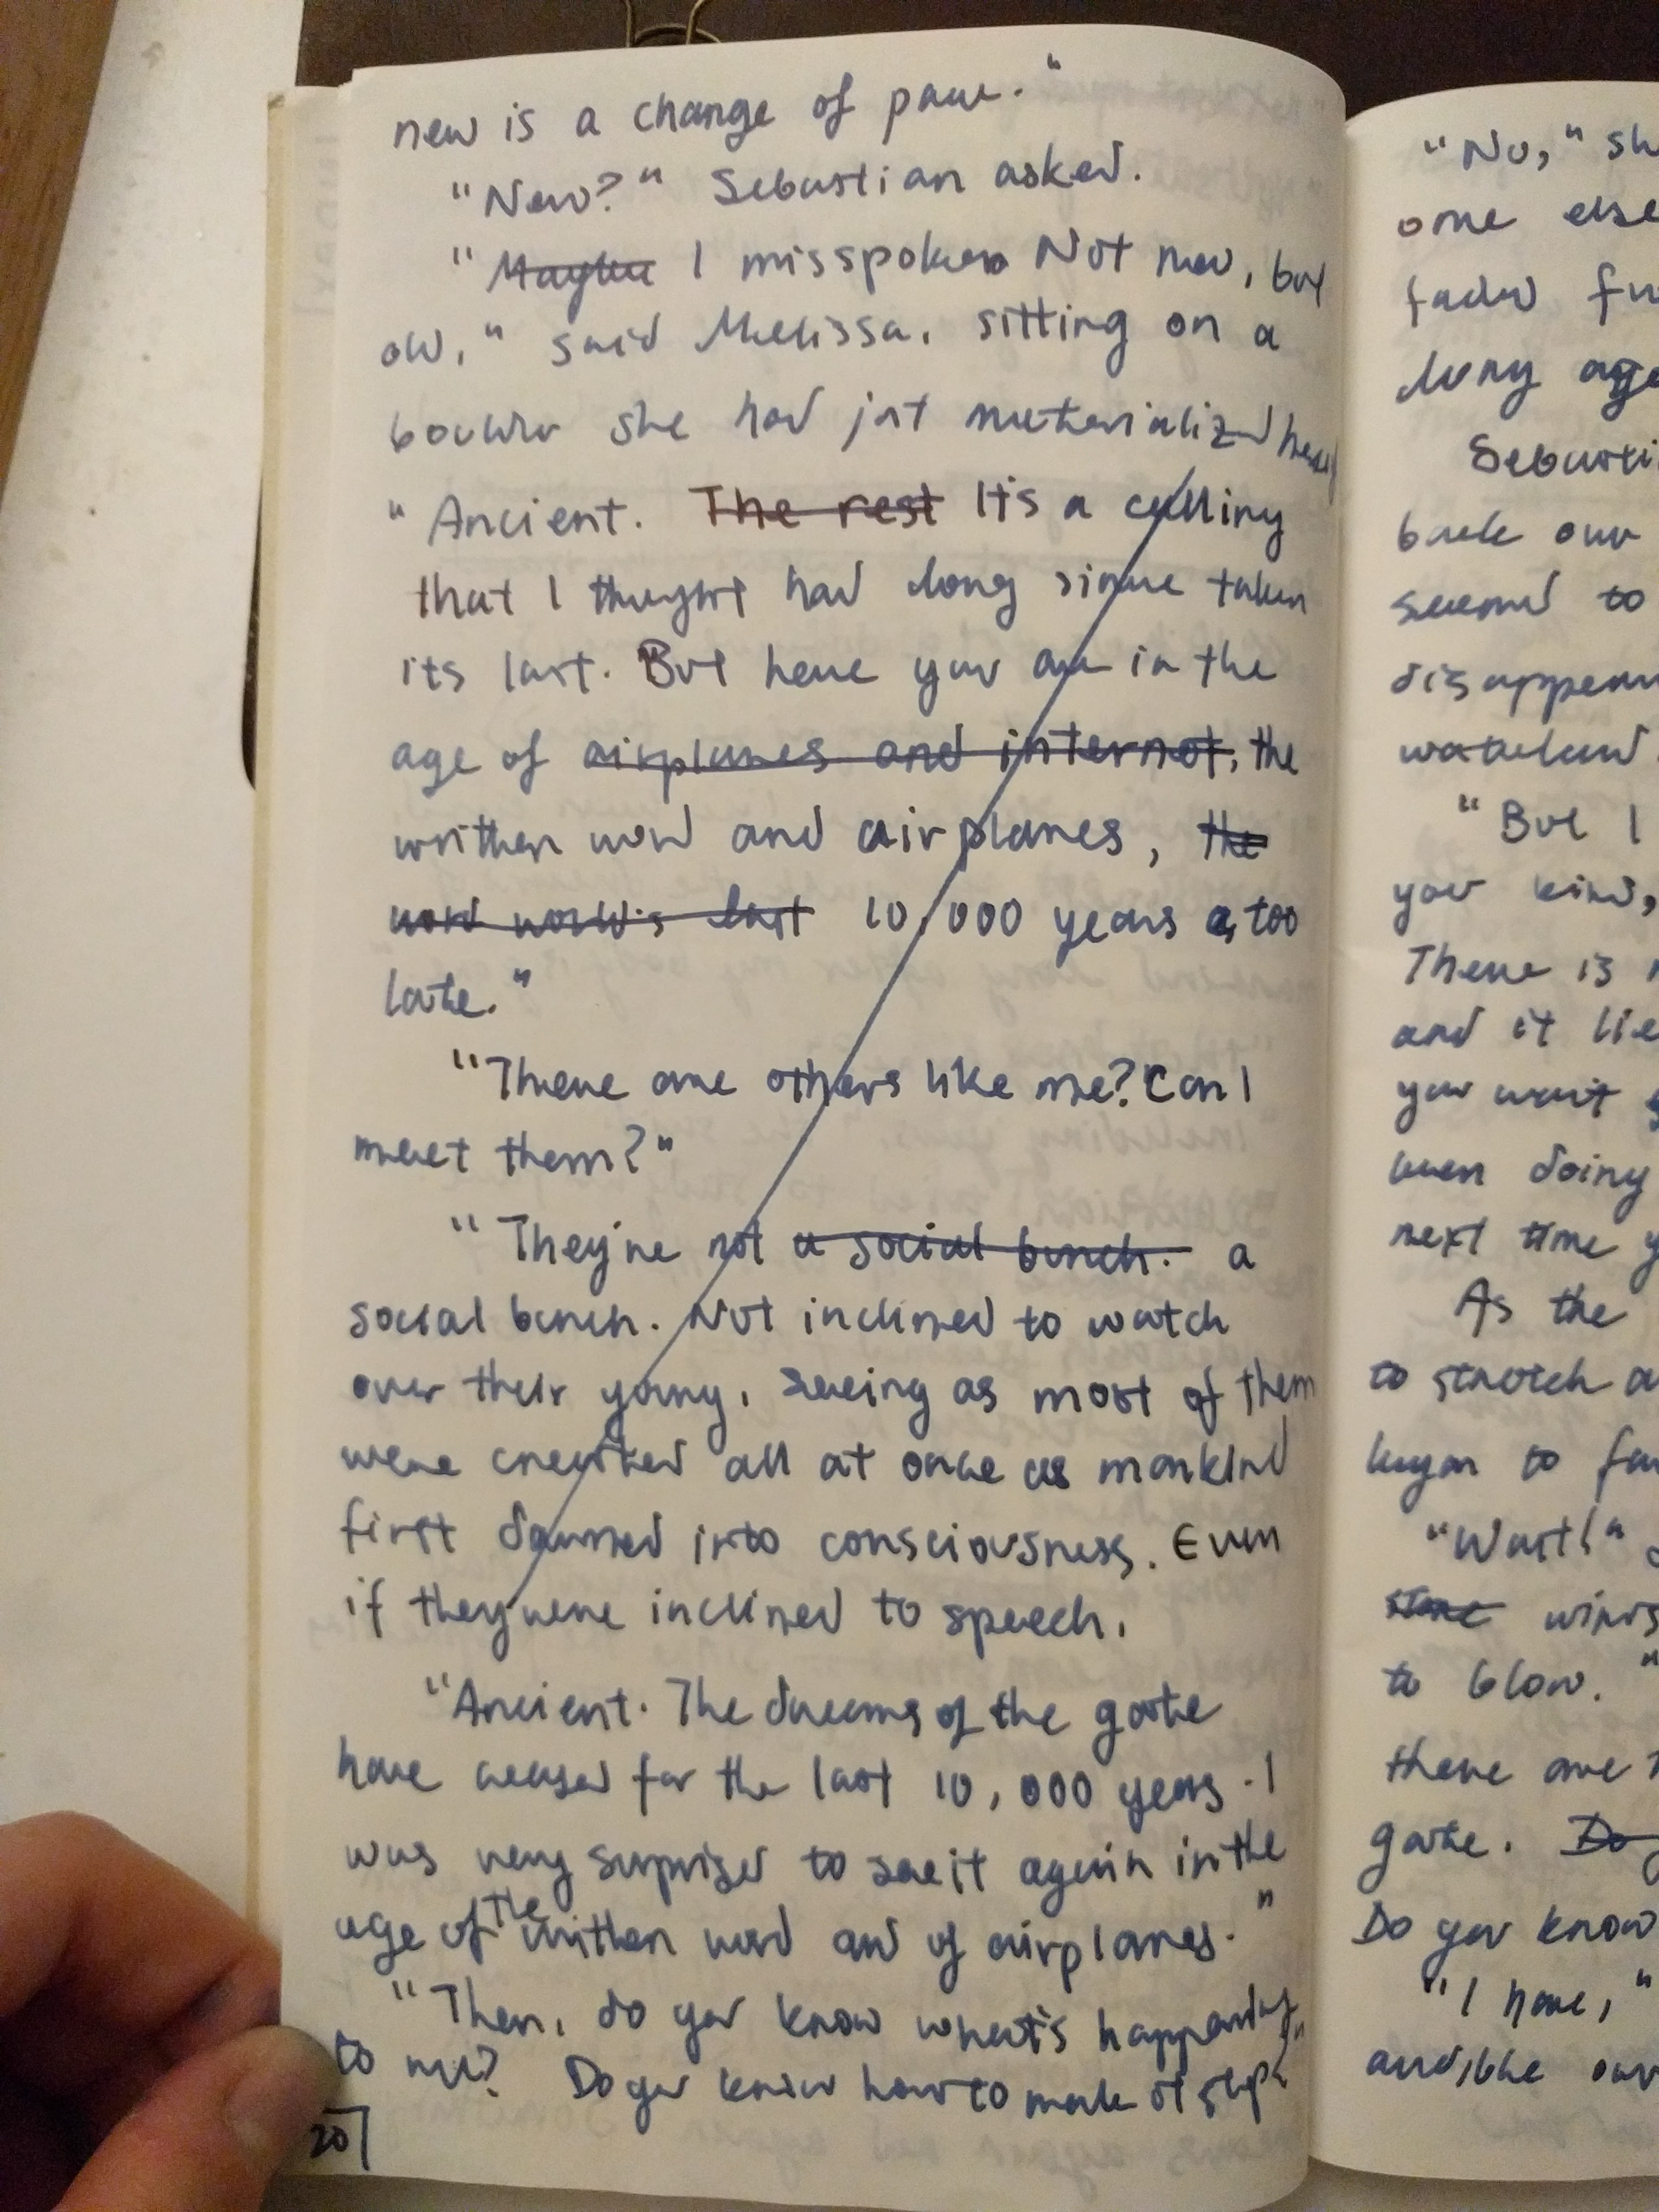 new is a change of pace."
"New?" Sebastian asked.
"Maybe I misspoke. Not new, but
old," said Melissa, sitting on a
boulder she had just materialized
"Ancient. The rest It's a calling
that I thought had long since taken
its last. But here you are in the
age of airplanes and internet, the
written word and airplanes, the
world's last 10,000 years too
late."
"There are others like me? Can I
meet them?"
"They're not a social bunch. a
social bunch. Not inclined to watch
over their young, seeing as most of them
were created all at once as mankind
first dawned into consciousness. Even
if they were inclined to speech,
"Ancient. The dreams of the gate
have ceased for the last 10,000 years. I
was very surprised to see it again in the
age of the written word and of airplanes."
"Then, do you know what's happening
to me? Do you know how to make it stop?"
20
"No," sh
one else
faded
long ago
Sebasti
back our
seemed to
disappear
"But I
your kind,
There is
and it lie
you want
been doing
next time y
As the
to stretch a
began to fa
"Wait!"
winds
to blow."
there are
gate. Do
Do you know
"I have,"
audible